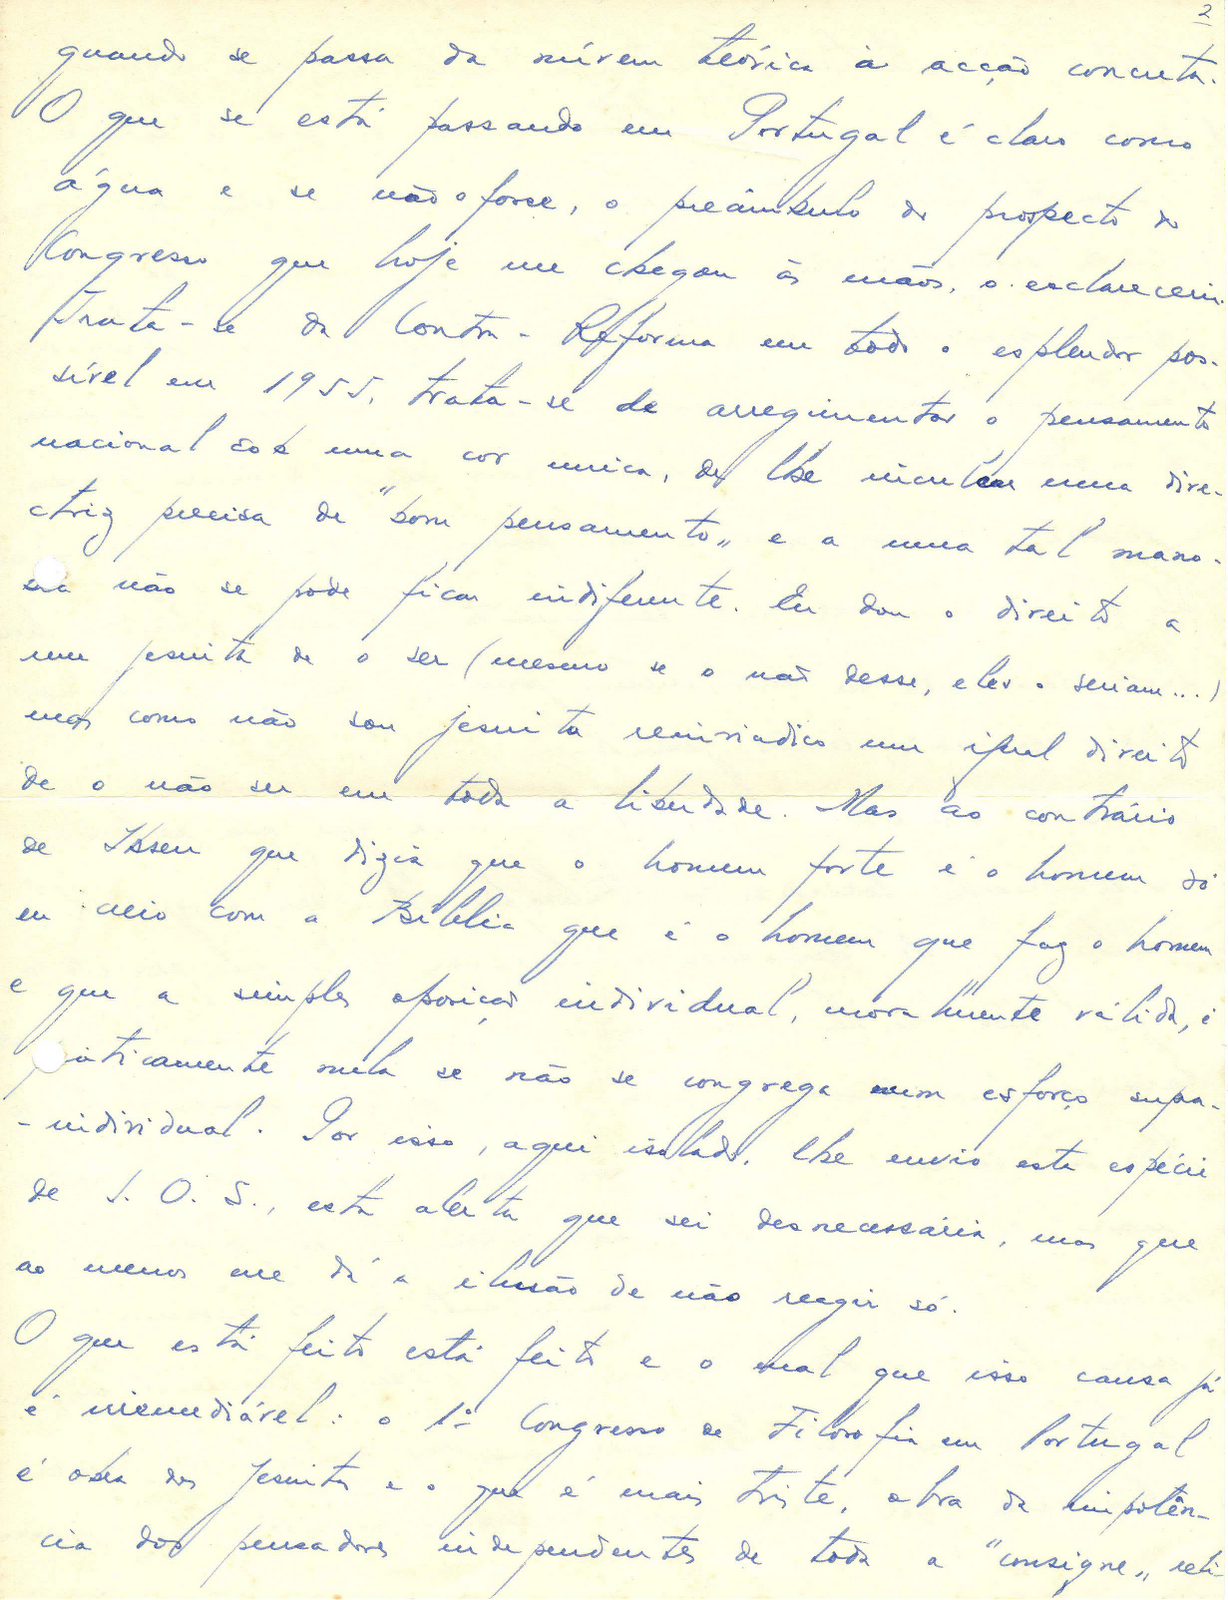 2
quando se passa da núvem teórica à acção concreta.
O que se está passando em Portugal é claro como
água e se não o fosse, o preâmbulo do prospecto do
Congresso que hoje me chegou às mãos, o esclareceria.
Trata-se da Contra-Reforma em todo o esplendor pos-
sível em 1955, trata-se de arregimentar o pensamento
nacional sob uma cor unica, de lhe inculcar uma dire-
ctriz precisa de "bom pensamento" e a uma tal mano-
bra não se pode ficar indiferente. Eu dou o direito a
um jesuita de o ser (mesmo se o não desse, eles o seriam...)
mas como não sou jesuita reivindico um igual direito
de o não ser em toda a liberdade. Mas ao contrário
de Ibsen que dizia que o homem forte é o homem só
eu creio com a Bíblia que é o homem que faz o homem
e que a simples oposição individual, moralmente válida, é
pràticamente nula se não se congrega num esforço supra-
-individual. Por isso, aqui isolado, lhe envio esta espécie
de S. O. S., esta alerta que sei desnecessária, mas que
ao menos me dá a ilusão de não reagir só.
O que está feito está feito e o mal que isso causa já
é irremediável: o 1º Congresso de Filosofia em Portugal
é obra dos Jesuitas e o que é mais triste, obra da impotên-
cia dos pensadores independentes de toda a "consigne"